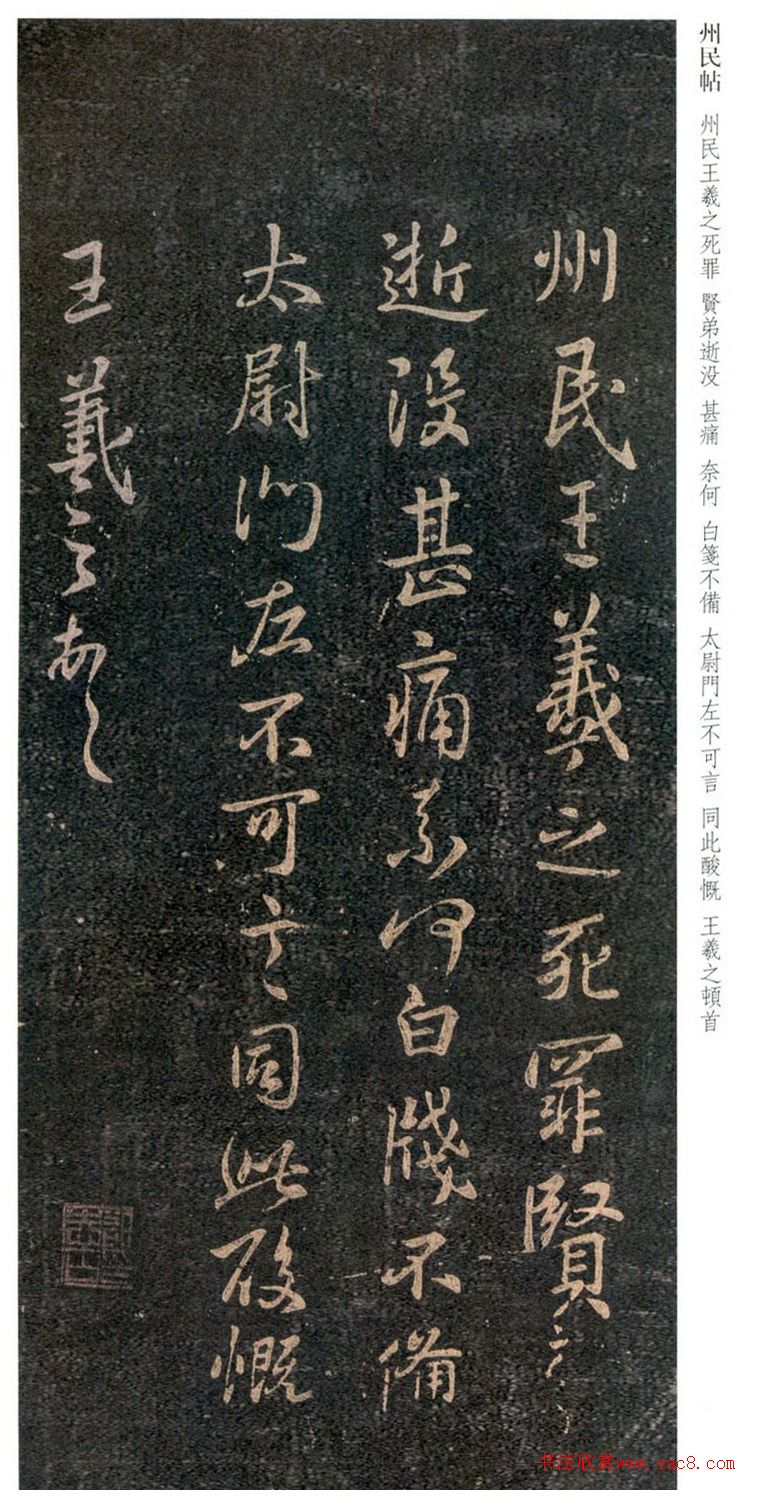 州民帖 州民王羲之死罪 賢弟逝没 甚痛 奈何 白箋不備 太尉門左不可言 同此酸慨 王羲之頓首
州民王羲之死罪賢弟
逝没甚痛奈何白牋不備
太尉門左不可言同此酸慨
王羲之頓首
书法欣赏www.yac8.com